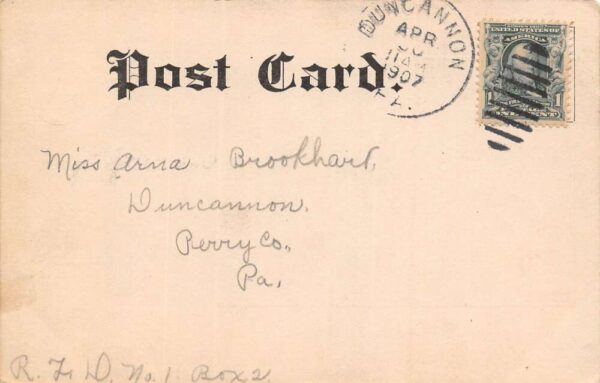 DUNCANNON
APR
1907
PA.
UNITED STATES OF
AMERICA
1 1
ONE CENT
Post Card.
Miss Arna Brookhart,
Duncannon.
Perry Co.,
Pa.
R. F. D. No. 1. Box 2.